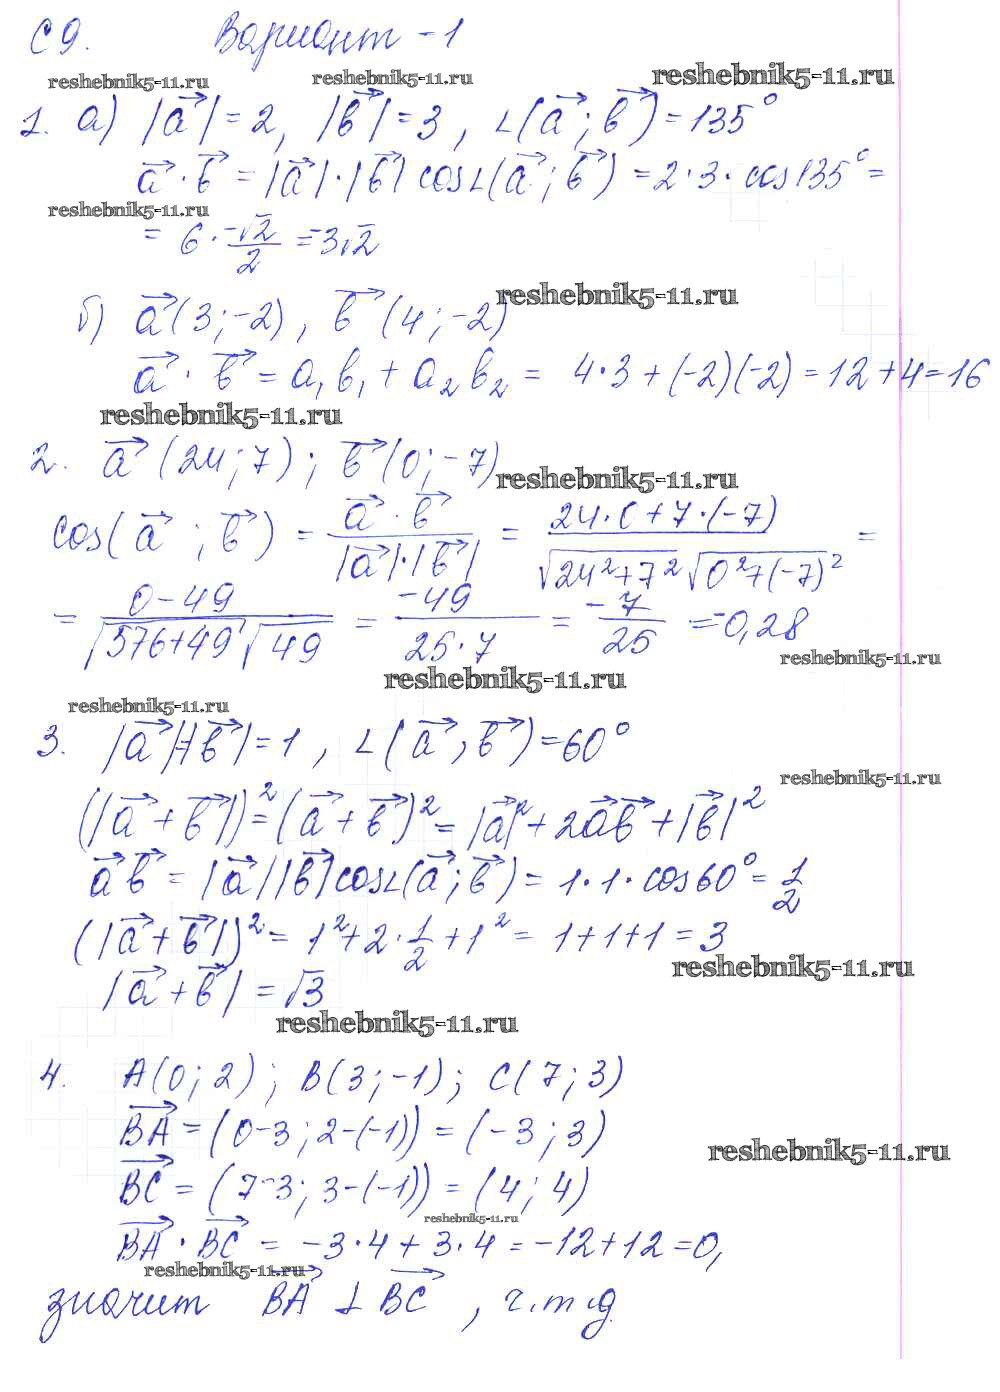 С 9. Вариант - 1
reshebnik5-11.ru reshebnik5-11.ru reshebnik5-11.ru
1. а) |a⃗| = 2, |b⃗| = 3, ∠(a⃗; b⃗) = 135°
a⃗ · b⃗ = |a⃗| · |b⃗| cos∠(a⃗; b⃗) = 2 · 3 · cos135° =
reshebnik5-11.ru
= 6 · -√2/2 = -3√2
reshebnik5-11.ru
б) a⃗(3; -2), b⃗(4; -2)
a⃗ · b⃗ = a₁b₁ + a₂b₂ = 4·3 + (-2)(-2) = 12 + 4 = 16
reshebnik5-11.ru
2. a⃗(24; 7); b⃗(0; -7)
reshebnik5-11.ru
cos(a⃗; b⃗) = a⃗ · b⃗ / |a⃗|·|b⃗| = 24·0+7·(-7) / √24²+7² √0²+(-7)² =
= 0-49 / √576+49 √49 = -49 / 25·7 = -7/25 = -0,28
reshebnik5-11.ru
reshebnik5-11.ru
reshebnik5-11.ru
3. |a⃗|=|b⃗| = 1, ∠(a⃗, b⃗) = 60°
reshebnik5-11.ru
(|a⃗ + b⃗|)² = (a⃗ + b⃗)² = |a⃗|² + 2a⃗b⃗ + |b⃗|²
a⃗b⃗ = |a⃗||b⃗|cos∠(a⃗; b⃗) = 1·1·cos60° = 1/2
(|a⃗ + b⃗|)² = 1² + 2·1/2 + 1² = 1+1+1 = 3
reshebnik5-11.ru
|a⃗ + b⃗| = √3
reshebnik5-11.ru
4. A(0; 2); B(3; -1); C(7; 3)
BA⃗ = (0-3; 2-(-1)) = (-3; 3)
reshebnik5-11.ru
BC⃗ = (7-3; 3-(-1)) = (4; 4)
reshebnik5-11.ru
BA⃗ · BC⃗ = -3·4 + 3·4 = -12+12 = 0,
reshebnik5-11.ru
значит BA⃗ ⊥ BC⃗, ч.т.д.